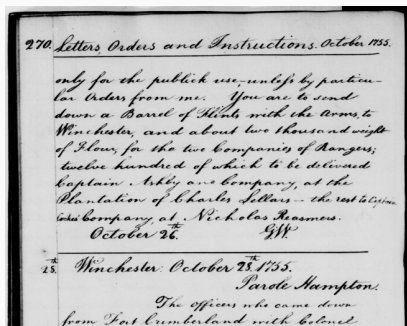 270. Letters, Orders and Instructions. October 1755.
only for the publick use-unless by particu-
lar Orders from me. You are to send
down a Barrel of Flints with the Arms, to
Winchester, and about two thousand weight
of Flour, for the two Companies of Rangers;
twelve hundred of which to be delivered
Captain Ashby and Company, at the
Plantation of Charles Sellars - the rest to Captain
Cockes Company, at Nicholas Reasmers.
October 26th. GW.
28th. Winchester: October 28th. 1755.
Parole Hampton.
The Officers who came down
from Fort Cumberland with Colonel